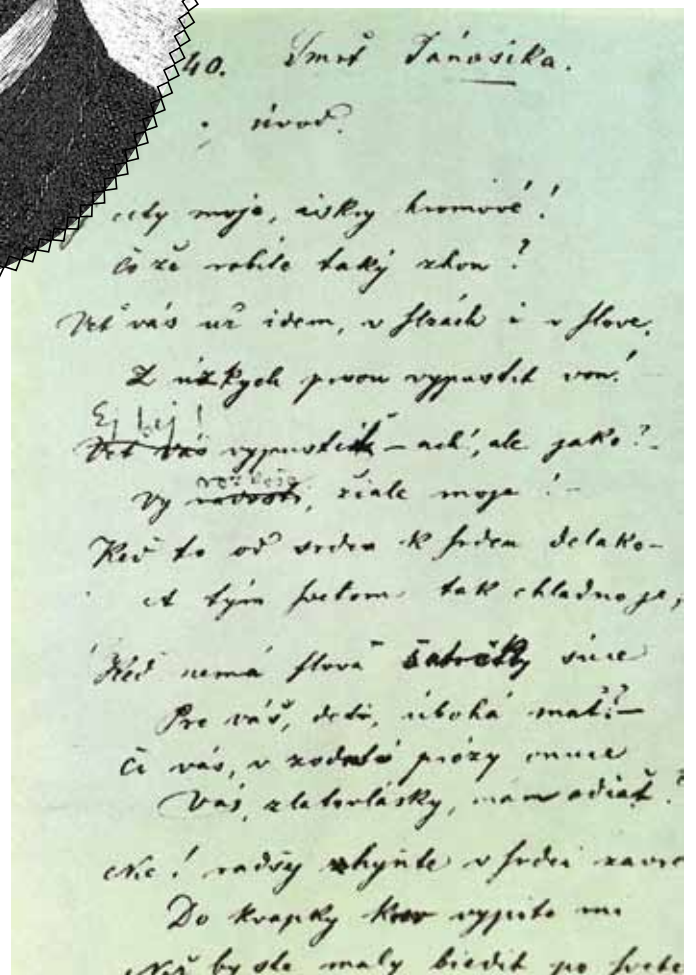 40. Smrť Jánošíka.
úvod.
city moje, iskry hromové!
Čo že robíte taký zhon?
Veť vás už idem, v slzách i v slove,
Z úzkych pŕsou vypustit von!
Ej hej!
Veť vás vypustiť – ach, ale jako?
Vy radosti, žiale moje!
Keď to od srdca k srdcu ďaleko –
A tým svetom tak chladno je,
Keď nemá slova šatôčky súce
Pre váš, deti, úbohá mať? –
Či vás, v prózy onuce
Vás, zlatovlásky, mám odiať?
Nie! radšy zhyňte v srdci
Do kvapky krv vypite mi
Než by ste maly biedit po svete